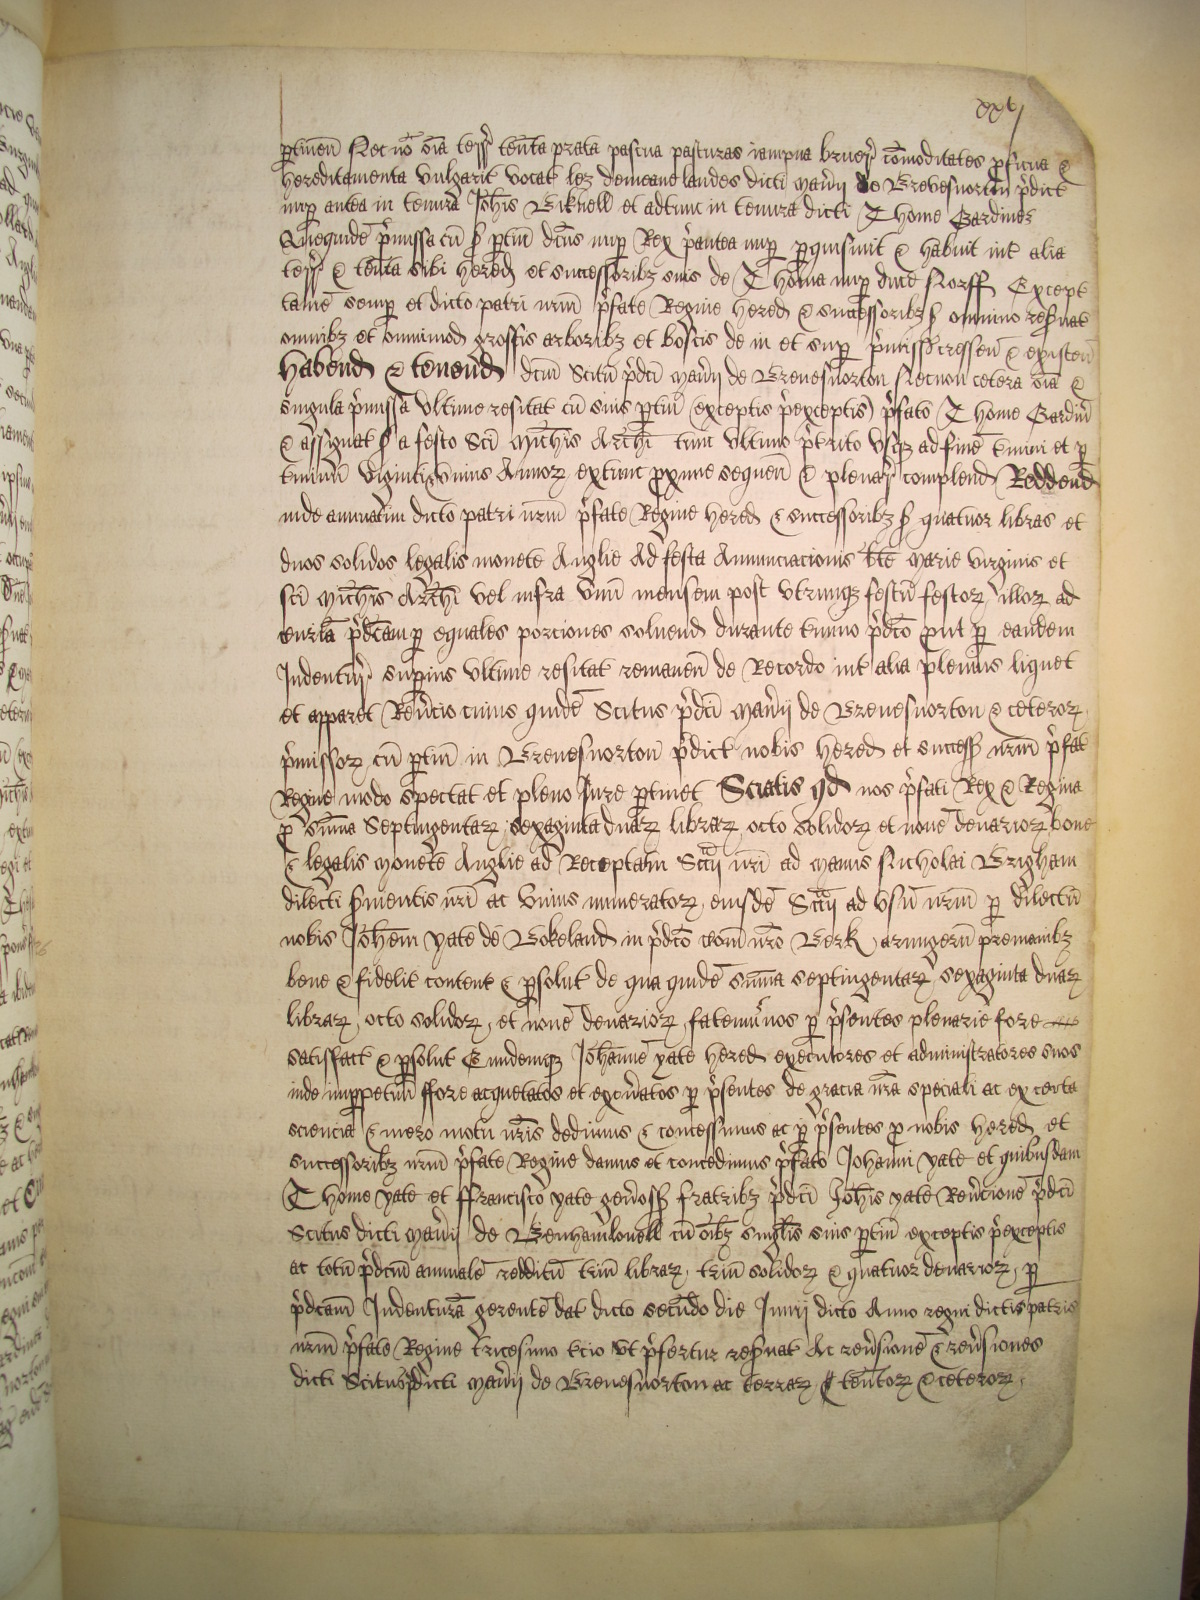 xxvj
ptinen Necnō oīa terr̄ teñta prata pascua pasturas iampna bruer̄ cōmoditates pficua &
hereditamenta vulgarit vocat lez demeane landes dicti man̄ij de Brevesnorton p̄dict
nup antea in tenura Joh̄is Biknell et adtunc in tenura dicti Thome Gardiner
Quequidē p̄missa cū ptin̄ dc̄us nup Rex p̄antea nup pquisiuit & habuit int alia
terr̄ & teñta sibi hered et successoribz suis de Thoma nup duce Norff Except
tamē semp et dicto patri nr̄m p̄fate Regine hered & successoribz omnino reſuat
omnibz et omnimod grossis arboribz et boscis de in et sup p̄miss crescen & existen
Habend & tenend dc̄m Scitū p̄dc̄i man̄ij de Brevesnorton Necnon cetera oīa &
singula p̄missa vltime resitat cū suis ptin̄ (exceptis p̄exceptis) p̄fato Thome Gardin̄
& assignat a festo Sc̄i Mich̄is Arch̄i tunc vltimo p̄terito vsqz ad finē t̄mini et p
t̄minū viginti vnius Annoz extunc pxime sequen & plenar̄ complend Reddend
inde annuatim dicto patri nr̄m p̄fate Regine hered & successoribz quatuor libras et
duos solidos legalis monete Anglie Ad festa Annunciacionis bt̄e Marie virginis et
sc̄i Mich̄is Arch̄i vel infra vnū mensem post vtrumqz festū festoz illoz ad
curia p̄dc̄am p equales porciones soluend durante t̄mino p̄dc̄o put p eandem
Indentur̄ supius vltime resitat remanen de Recordo int alia plenius liquet
et apparet Reūcio cuius quidē Scitus p̄dc̄i man̄ij de Brevesnorton & ceteroz
p̄missoz cū ptin̄ in Brevesnorton p̄dict nobis hered et success nr̄m p̄fat
Regine modo spectat et pleno Jure ptinet Sciatis qd nos p̄fati Rex & Regina
p sum̄a Septingentaz sexaginta duaz libraz octo solidoz et nouē denarioz bone
& legalis monete Anglie ad Receptam Scc̄ij nr̄i ad manus Nicholai Brigham
dilecti seruientis nr̄i ac vnius numeratoz eiusdē Scc̄ij ad vsū nr̄m p dilectū
nobis Joh̄em yate de Bokeland in p̄dc̄o com̄ nr̄o Berk armigerū premanibz
bene & fidelit content & psolut de qua quidē sum̄a septingentaz sexaginta duaz
libraz octo solidoz et nouē denarioz fatemur nos p p̄sentes plenarie fore
satisfact & psolut Eundemqz Joh̄annē yate hered executores et administratores suos
inde imppetuū ffore acquietatos et exon̄atos p p̄sentes de gracia nr̄a speciali ac ex certa
sciencia & mero motu nr̄is dedimus & concessimus ac p p̄sentes p nobis hered et
successoribz nr̄m p̄fate Regine damus et concedimus p̄fato Johanni yate et quibusdam
Thome yate et ffrancisco yate gen̄os fratribz p̄dc̄i Joh̄is yate Reūcionē p̄dc̄i
Scitus dicti man̄ij de Benhamlouell cū oībz singlis suis ptin̄ exceptis p̄exceptis
ac totū p̄dc̄m annualē redditū triū libraz triū solidoz & quatuor denarioz p
p̄dc̄am Indenturā gerentē dat dicto secūdo die Junij dicto Anno regni dictis patris
nr̄m p̄fate Regine tricesimo t̄cio vt p̄fertur reſuat Ac reūsionē & reūsiones
dicti Scitus p̄dicti man̄ij de Brevesnorton ac terraz teñtoz & ceteroz